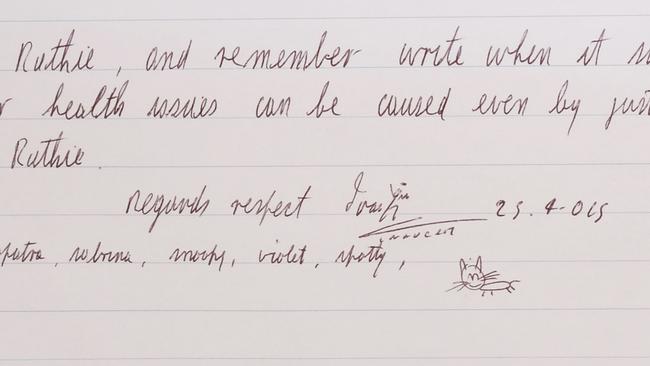 Ruthie, and remember write when it
health issues can be caused even by
Ruthie.
regards respect Ivan
innocent
25.4-015
sabrina, snoopy, violet, spotty,